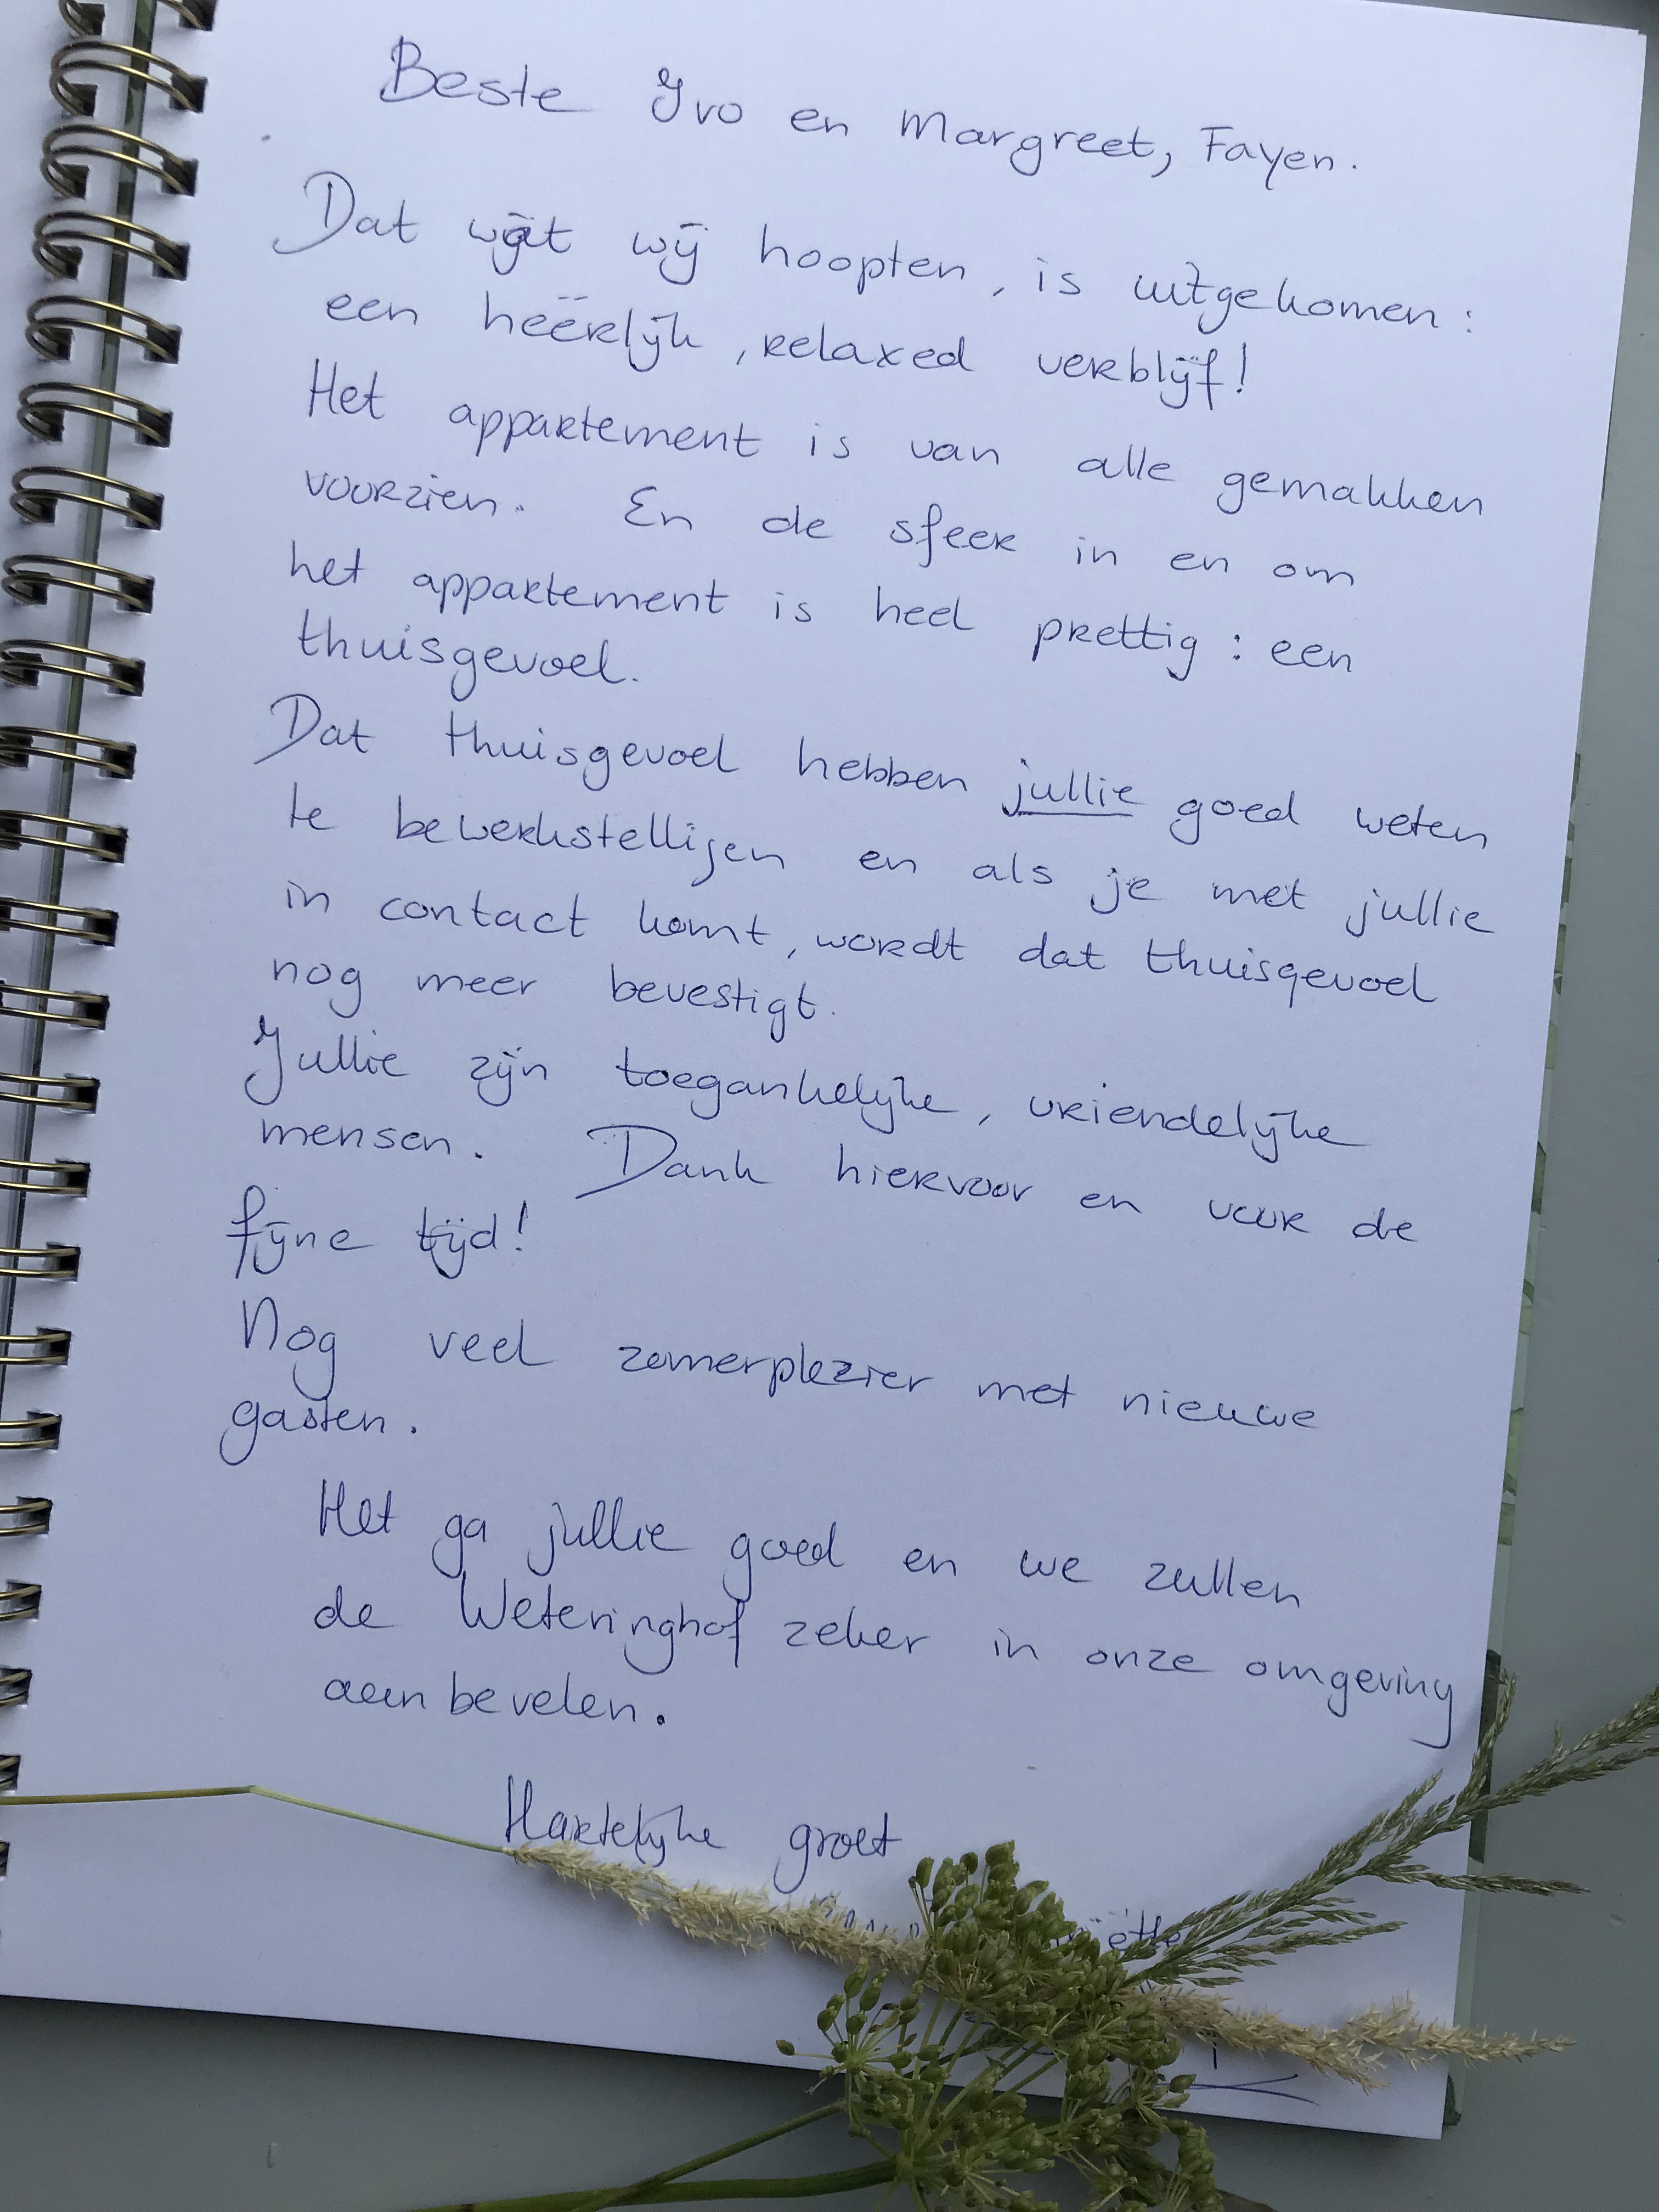 Beste Ivo en Margreet, Fayen.
Dat wat wij hoopten, is uitgekomen:
een heërlijk, relaxed verblijf!
Het appartement is van alle gemakken
voorzien. En de sfeer in en om
het appartement is heel prettig: een
thuisgevoel.
Dat thuisgevoel hebben jullie goed weten
te bewerkstelligen en als je met jullie
in contact komt, wordt dat thuisgevoel
nog meer bevestigt.
Jullie zijn toegankelijke, vriendelijke
mensen. Dank hiervoor en voor de
fijne tijd!
Nog veel zomerplezier met nieuwe
gasten.
Het ga jullie goed en we zullen
de Weteringhof zeker in onze omgeving
aanbevelen.
Hartelijke groet